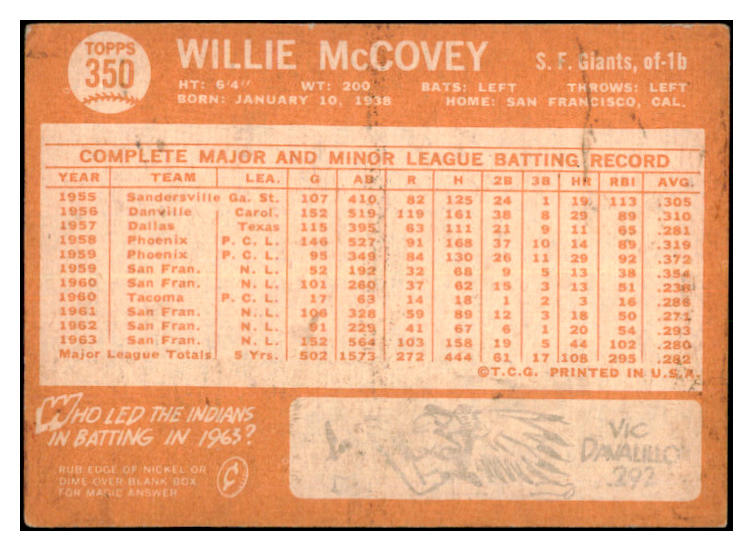 TOPPS
350
WILLIE McCOVEY
S. F. Giants, of-1b
HT: 6'4" WT: 200 BATS: LEFT THROWS: LEFT
BORN: JANUARY 10, 1938 HOME: SAN FRANCISCO, CAL.
COMPLETE MAJOR AND MINOR LEAGUE BATTING RECORD
YEAR TEAM LEA. G AB R H 2B 3B HR RBI AVG.
1955 Sandersville Ga. St. 107 410 82 125 24 1 19 113 .305
1956 Danville Carol. 152 519 119 161 38 8 29 89 .310
1957 Dallas Texas 115 395 63 111 21 9 11 65 .281
1958 Phoenix P. C. L. 146 527 91 168 37 10 14 89 .319
1959 Phoenix P. C. L. 95 349 84 130 26 11 29 92 .372
1959 San Fran. N. L. 52 192 32 68 9 5 13 38 .354
1960 San Fran. N. L. 101 260 37 62 15 3 13 51 .238
1960 Tacoma P. C. L. 17 63 14 18 1 2 3 16 .286
1961 San Fran. N. L. 106 328 59 89 12 3 18 50 .271
1962 San Fran. N. L. 91 229 41 67 6 1 20 54 .293
1963 San Fran. N. L. 152 564 103 158 19 5 44 102 .280
Major League Totals 5 Yrs. 502 1573 272 444 61 17 108 295 .282
©T.C.G. PRINTED IN U.S.A.
WHO LED THE INDIANS
IN BATTING IN 1963?
RUB EDGE OF NICKEL OR
DIME OVER BLANK BOX
FOR MAGIC ANSWER
VIC
DAVALILLO
.292